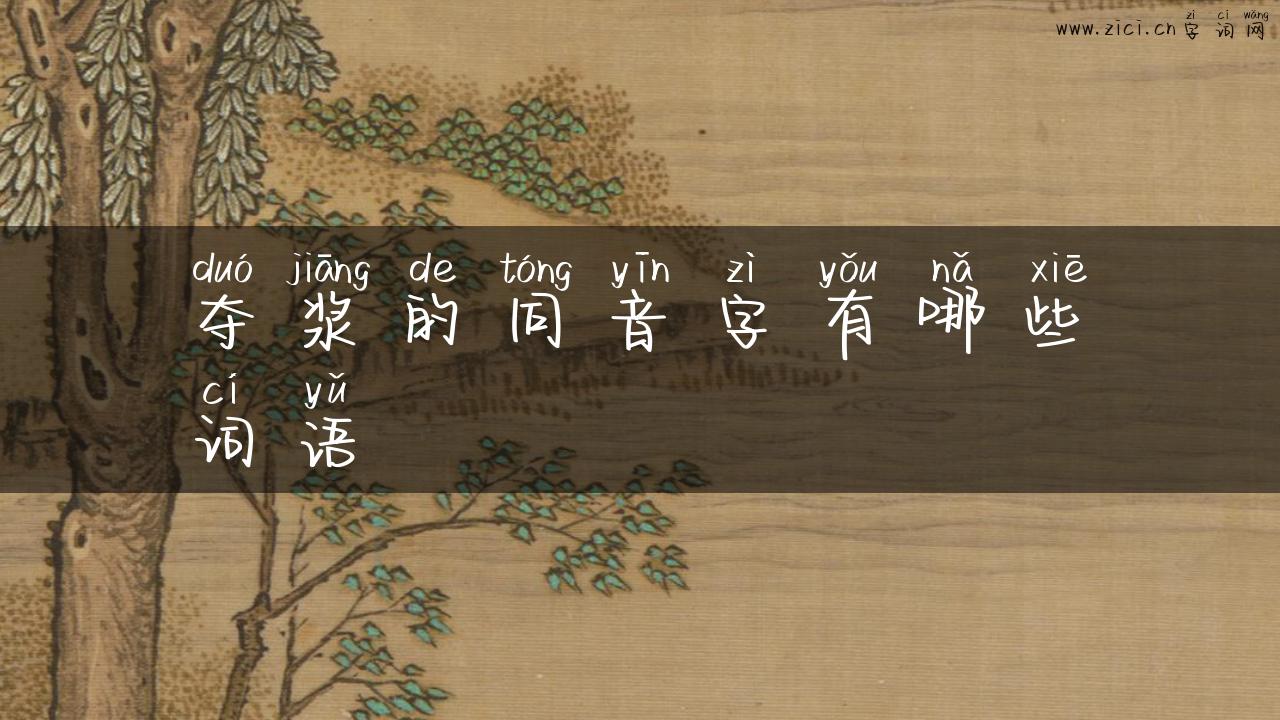 zì cí wǎng
www.zici.cn 字词网
duó jiāng de tóng yīn zì yǒu nǎ xiē
夺浆的同音字有哪些
cí yǔ
词语